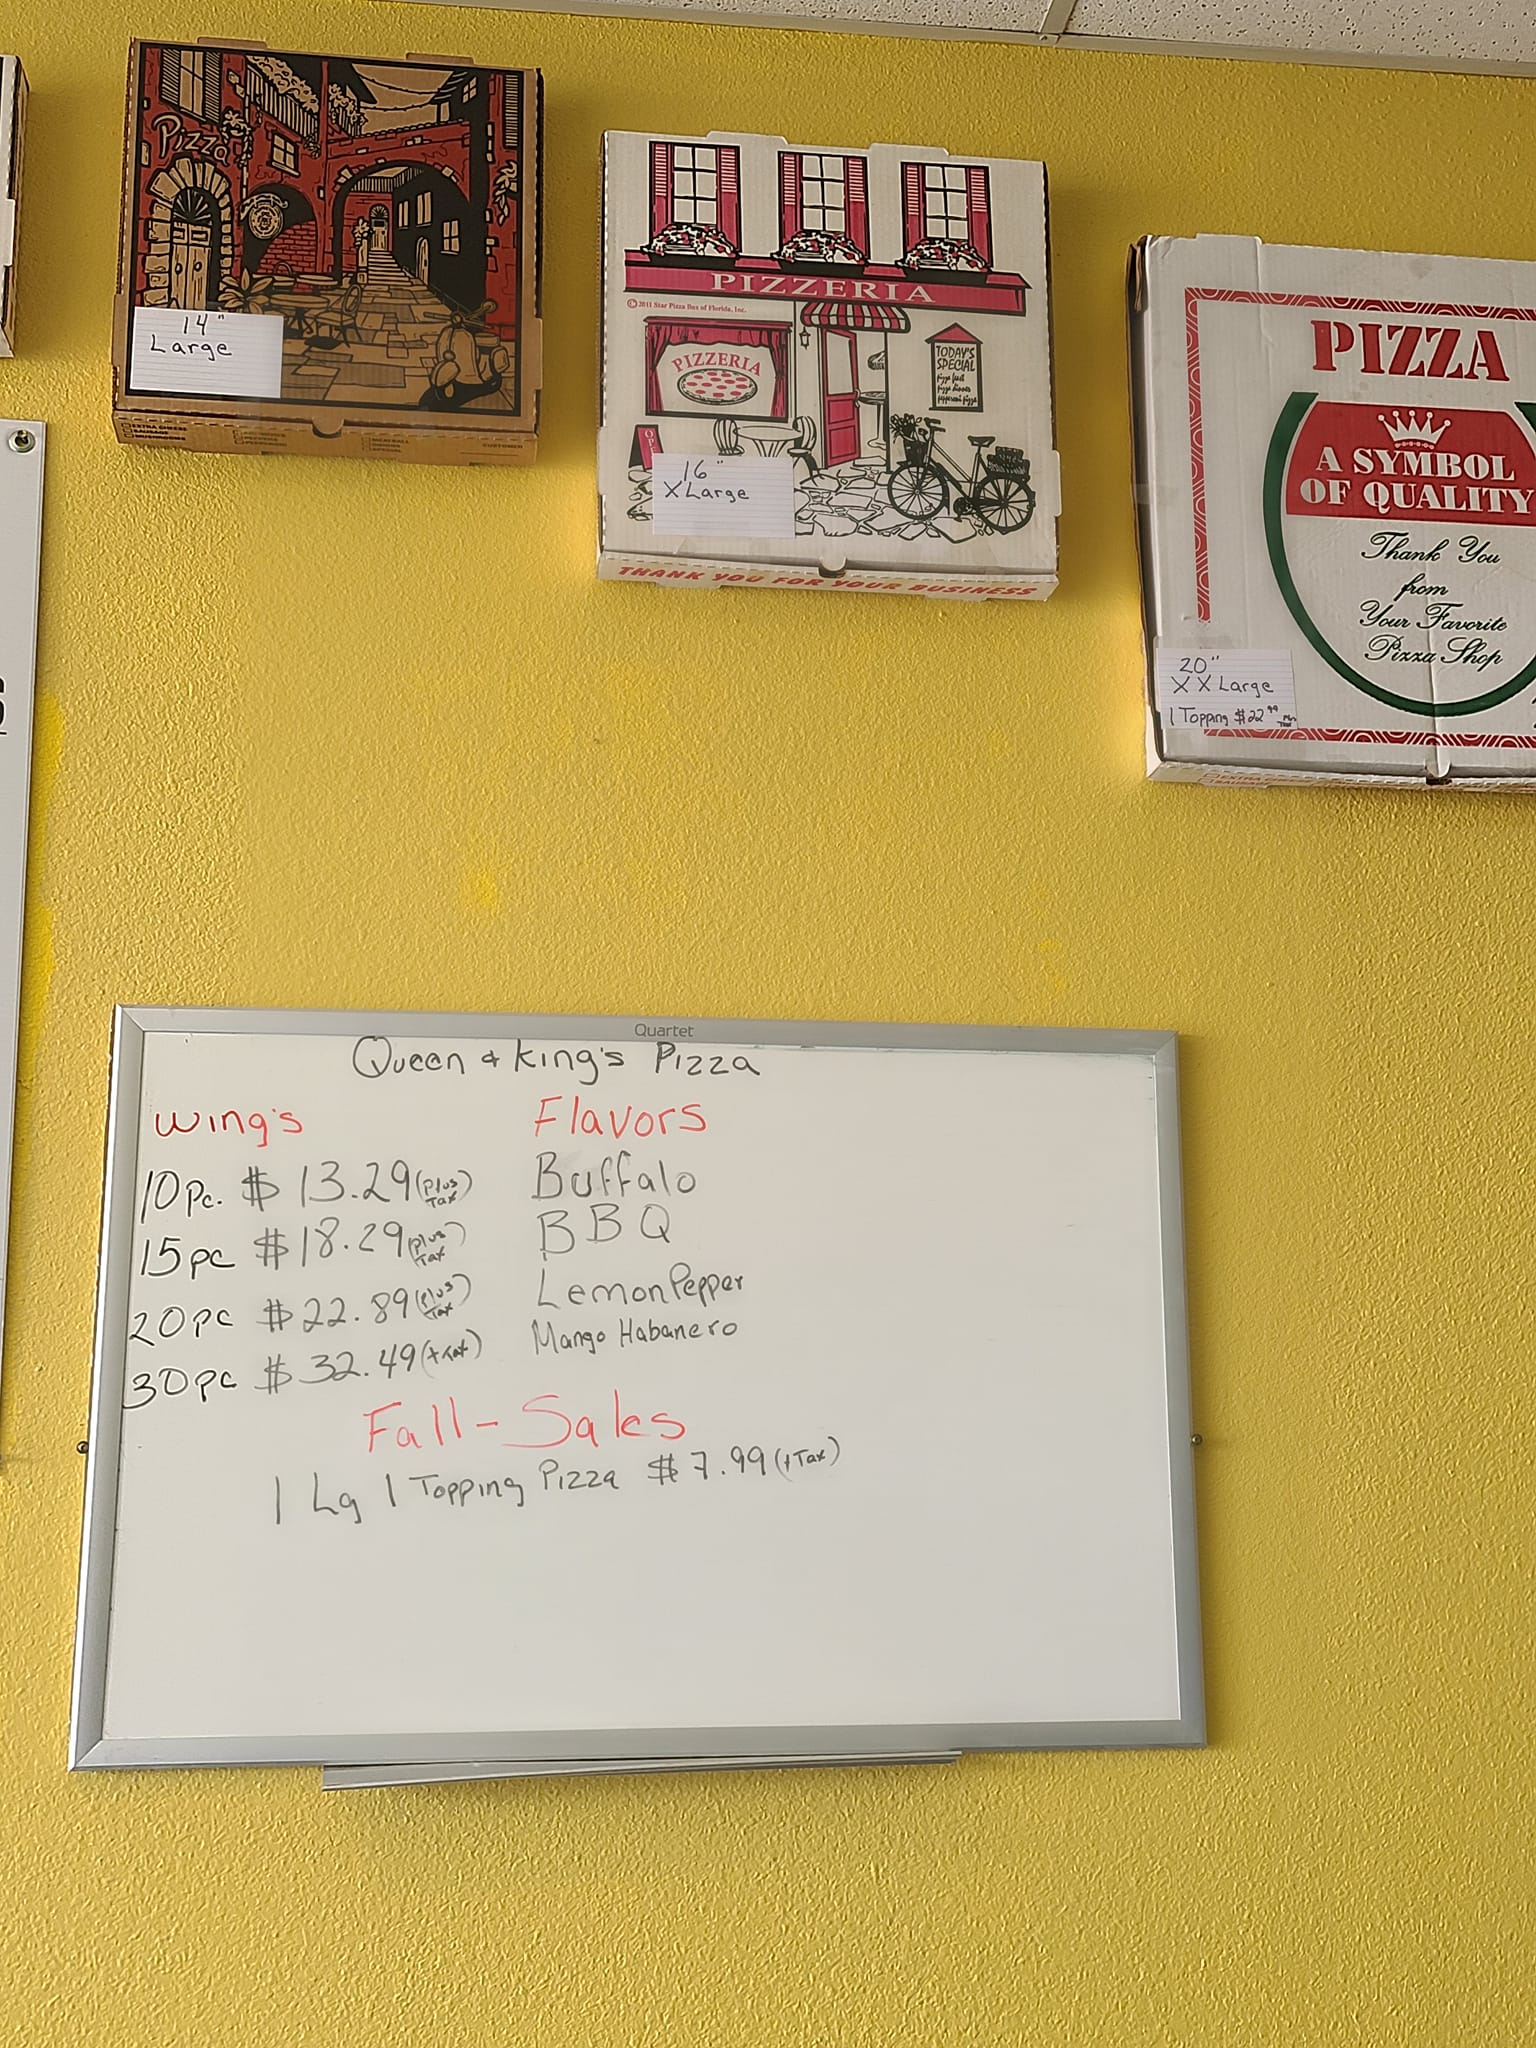 Pizza
14"
Large
EXTRA CHEESE
SAUSAGE
MUSHROOMS
CUSTOMER
PIZZERIA
© 2011 Star Pizza Box of Florida, Inc.
PIZZERIA
TODAY'S
SPECIAL
16"
X Large
THANK YOU FOR YOUR BUSINESS
PIZZA
A SYMBOL
OF QUALITY
Thank You
from
Your Favorite
Pizza Shop
20"
X X Large
1 Topping $22.99 Plus Tax
EXTRA CHEESE
Quartet
Queen & King's Pizza
Wing's
Flavors
10pc. $13.29 (plus Tax)
Buffalo
15pc $18.29 (plus Tax)
BBQ
20pc $22.89 (plus Tax)
Lemon Pepper
30pc $32.49 (+Tax)
Mango Habanero
Fall-Sales
1 Lg 1 Topping Pizza $7.99 (+Tax)